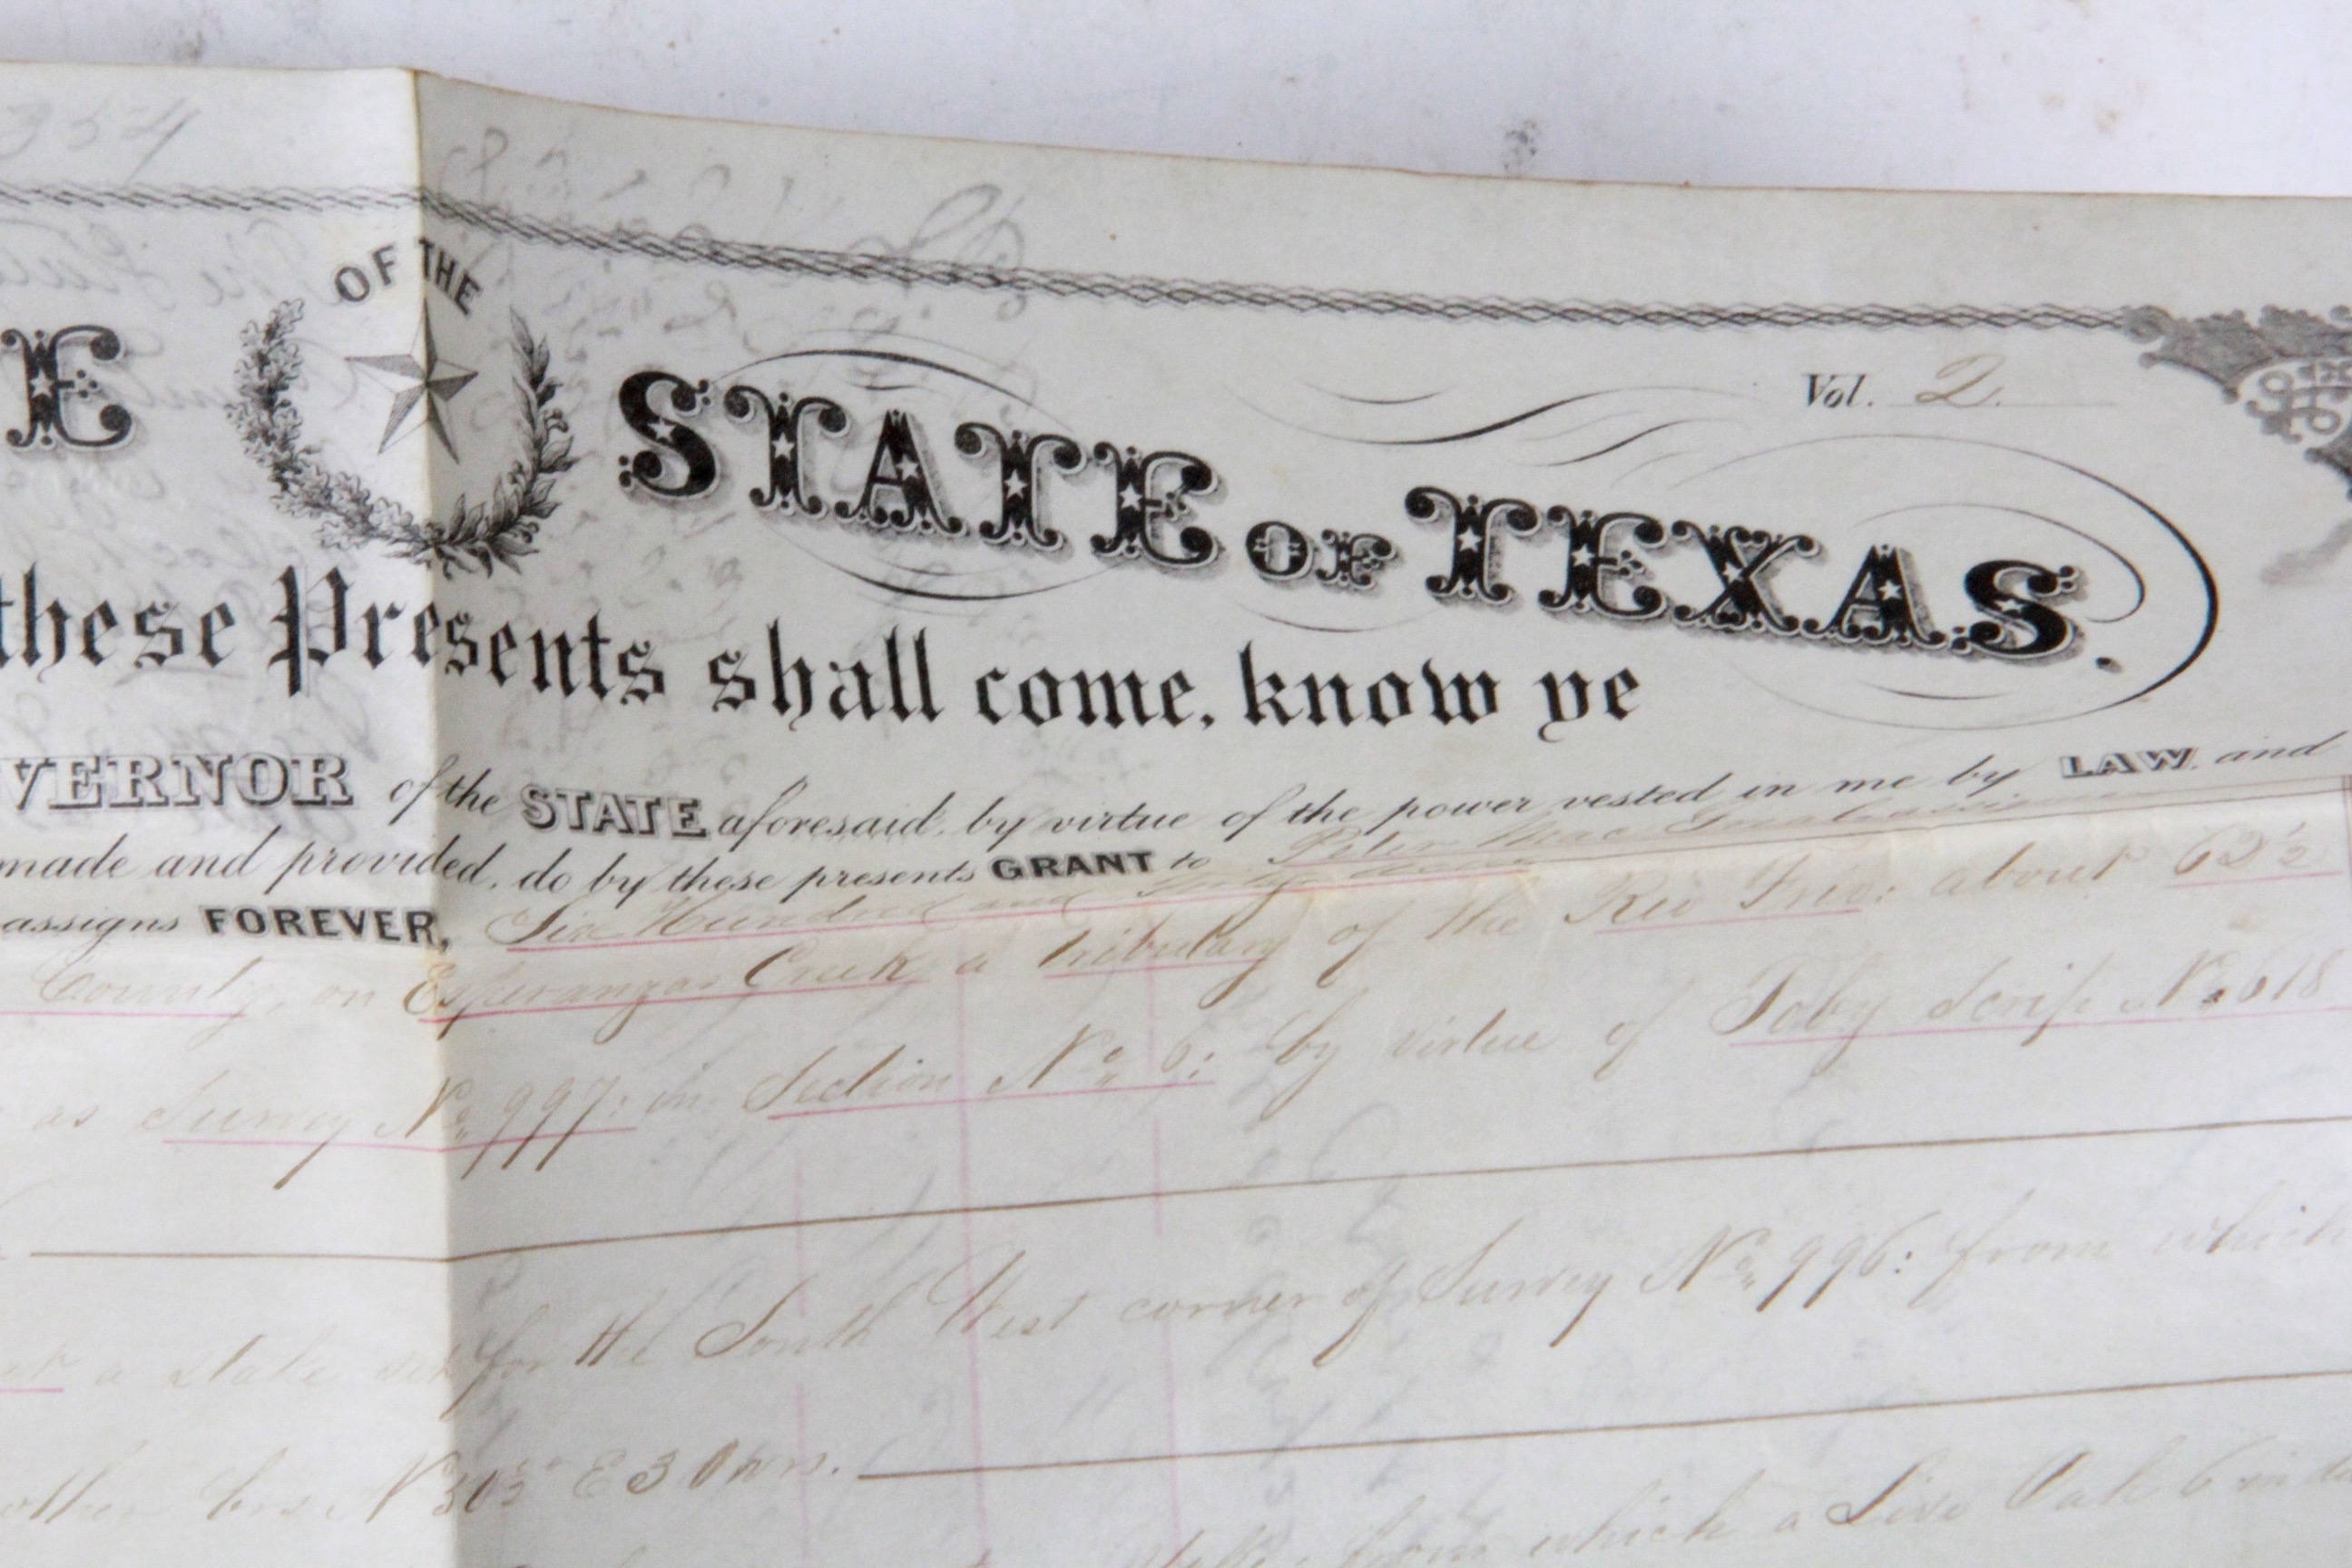 354
E OF THE STATE OF TEXAS.
Vol. 2.
these Presents shall come, know ye
VERNOR of the STATE aforesaid, by virtue of the power vested in me by LAW and
made and provided, do by these presents GRANT to Peter Mac
assigns FOREVER, Six Hundred and forty acres
County, on Esperanzas Creek a tributary of the Rio Frio: about 62½
as Survey No. 997: in Section No. 6: by virtue of Toby Scrip No. 618
at a stake set for the South West corner of Survey No. 996: from which
other brs N 50½° E 30 vrs.
stake from which a Live Oak 6 in dia